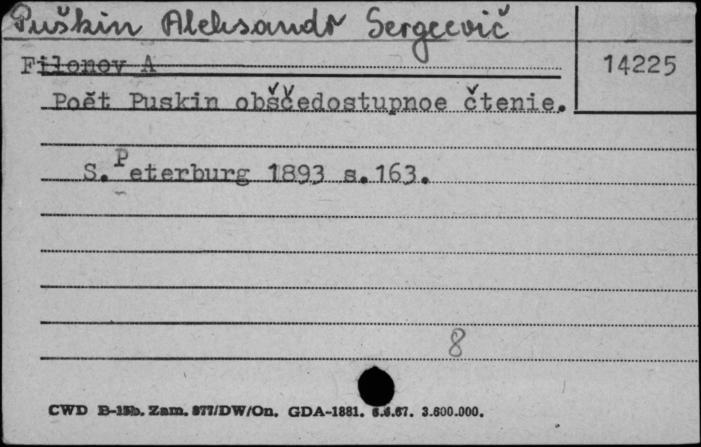 Puškin Aleksandr Sergeevič
Filonov A
14225
Poět Puskin obščedostupnoe čtenie.
S.Peterburg 1893 s.163.
8
CWD B-15b. Zam. 877/DW/On. GDA-1881. 6.6.67. 3.600.000.